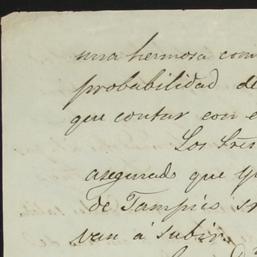 una hermosa com
probabilidad de
que contar con e
Los Sres
asegurado que
de Tampico se
van á subir